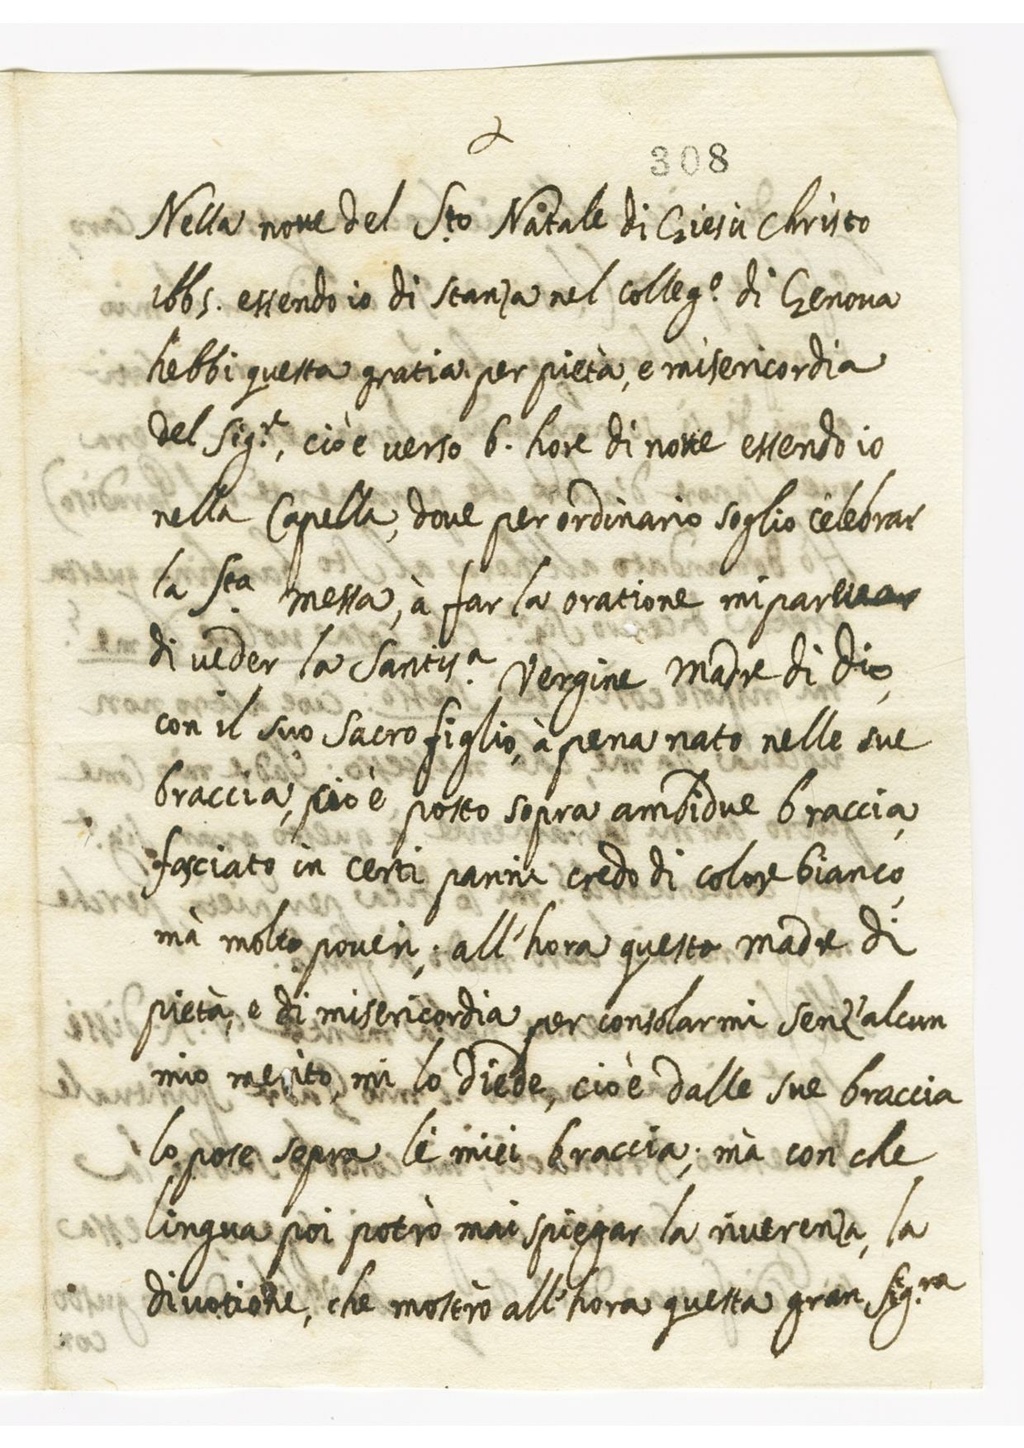 308
Nella notte del Sto Natale di Giesù Christo
1665. essendo io di stanza nel colleg.o di Genova
hebbi questa gratia per pietà, e misericordia
del Sig.re, cioè verso 6. hore di notte essendo io
nella Capella, dove per ordinario soglio celebrar
la Sta. messa, à far la oratione mi parve
di veder la Santis.a Vergine Madre di Dio,
con il suo sacro figlio, à pena nato nelle sue
braccia, cioè posto sopra ambidue braccia,
fasciato in certi panni credo di colore bianco,
mà molto poveri; all'hora questa madre di
pietà, e di misericordia per consolarmi senz'alcun
mio merito, mi lo diede, cioè dalle sue braccia
lo pose sopra le miei braccia; mà con che
lingua poi potrò mai spiegar la riverenza, la
divotione, che mostrò all'hora questa gran Sig.ra